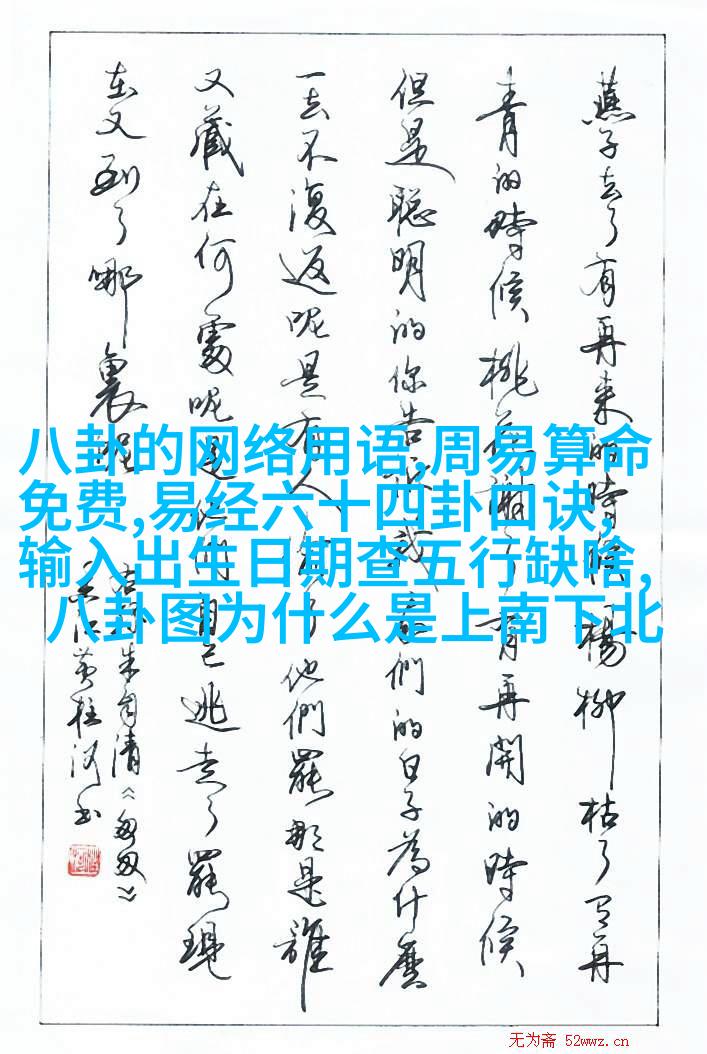 燕子去了有再来的時候楊柳枯了有再
青的時候桃花謝了有再開的時候
但是聰明的你告訴我我們的日子為什麼
一去不復返呢是有人偷了他們罷那是誰
又藏在何處呢是他們自己逃走了罷現
在又到了哪裏呢
朱自清《匆匆》
八卦的网络用语,周易算命
免费,易经六十四卦口诀,
输入出生日期查五行缺啥,
八卦图为什么是上南下北
无为斋 52wwz.cn